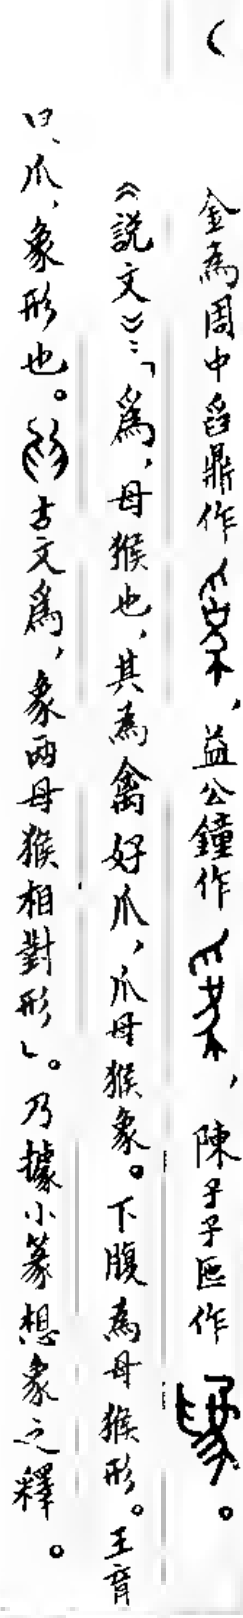 金為周中舀鼎作，益公鐘作，陳子子匜作。
《說文》：「爲，母猴也，其為禽好爪，爪母猴象。下腹為母猴形。王育
曰、爪，象形也。古文爲，象兩母猴相對形」。乃據小篆想象之釋。